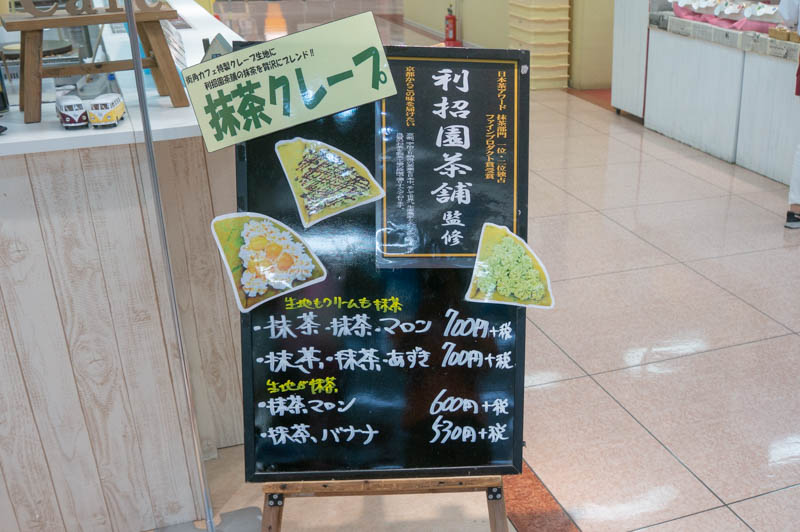 街角カフェ特製クレープ生地に
利招園茶舗の抹茶を贅沢にブレンド!!
抹茶クレープ
日本茶アワード 抹茶部門 一位・二位独占
ファインプロダクト賞受賞
利招園茶舗 監修
京都からこの味を届けたい
生地もクリームも抹茶
・抹茶・抹茶・マロン 700円+税
・抹茶・抹茶・あずき 700円+税
生地が抹茶
・抹茶、マロン 600円+税
・抹茶、バナナ 530円+税